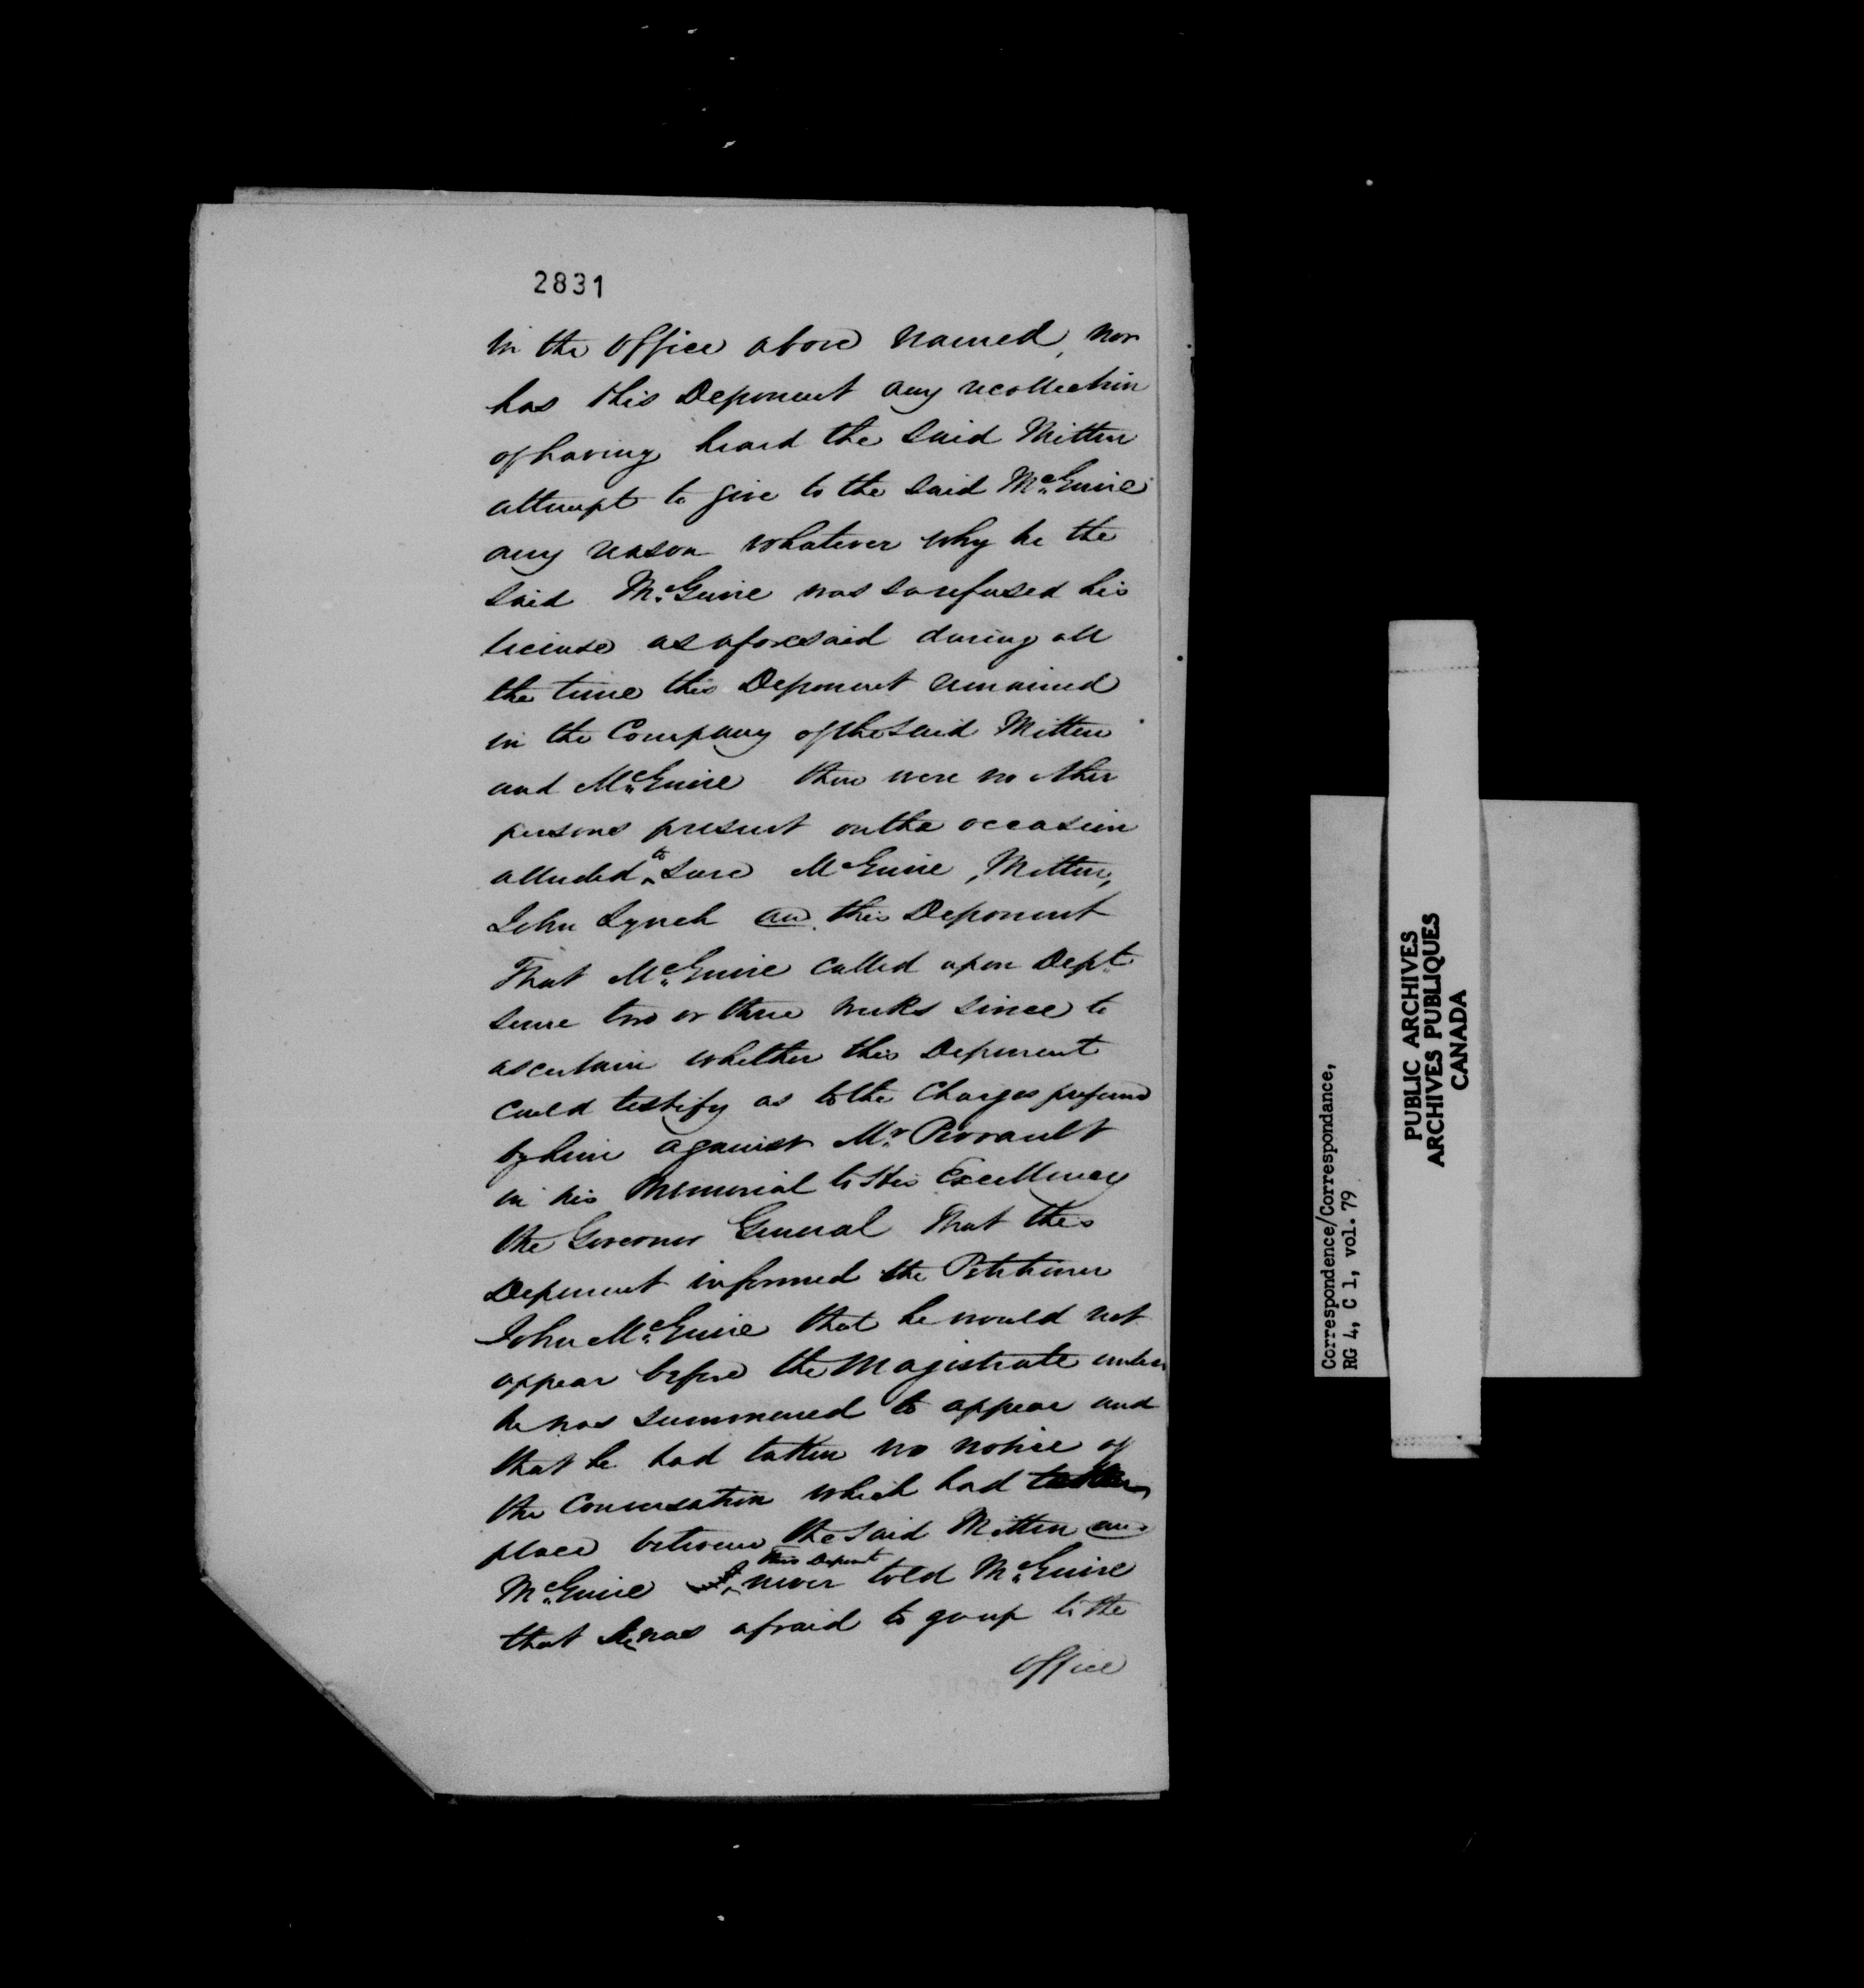 2831
in the Office above named, nor
has this Deponent any recollection
of having heard the said Mitten
attempt to give to the said McGuire
any reason whatever why he the
said McGuire was so refused his
license as aforesaid during all
the time this Deponent remained
in the Company of the said Mitten
and McGuire there were no other
persons present on the occasion
alluded to save McGuire, Mitten,
John Lynch and this Deponent
That McGuire called upon Dept
some two or three weeks since to
ascertain whether this Deponent
could testify as to the Charges prefered
by him against Mr Perrault
in his Memorial to His Excellency
the Governor General That this
Deponent informed the Petitioner
John McGuire that he would not
appear before the Magistrate unless
he was summoned to appear and
that he had taken no notice of
the Conversation which had taken
place between the said Mitten and
McGuire this Deponent never told McGuire
that he was afraid to go up to the
Office
Correspondence/Correspondance,
RG 4, C 1, vol. 79
PUBLIC ARCHIVES
ARCHIVES PUBLIQUES
CANADA